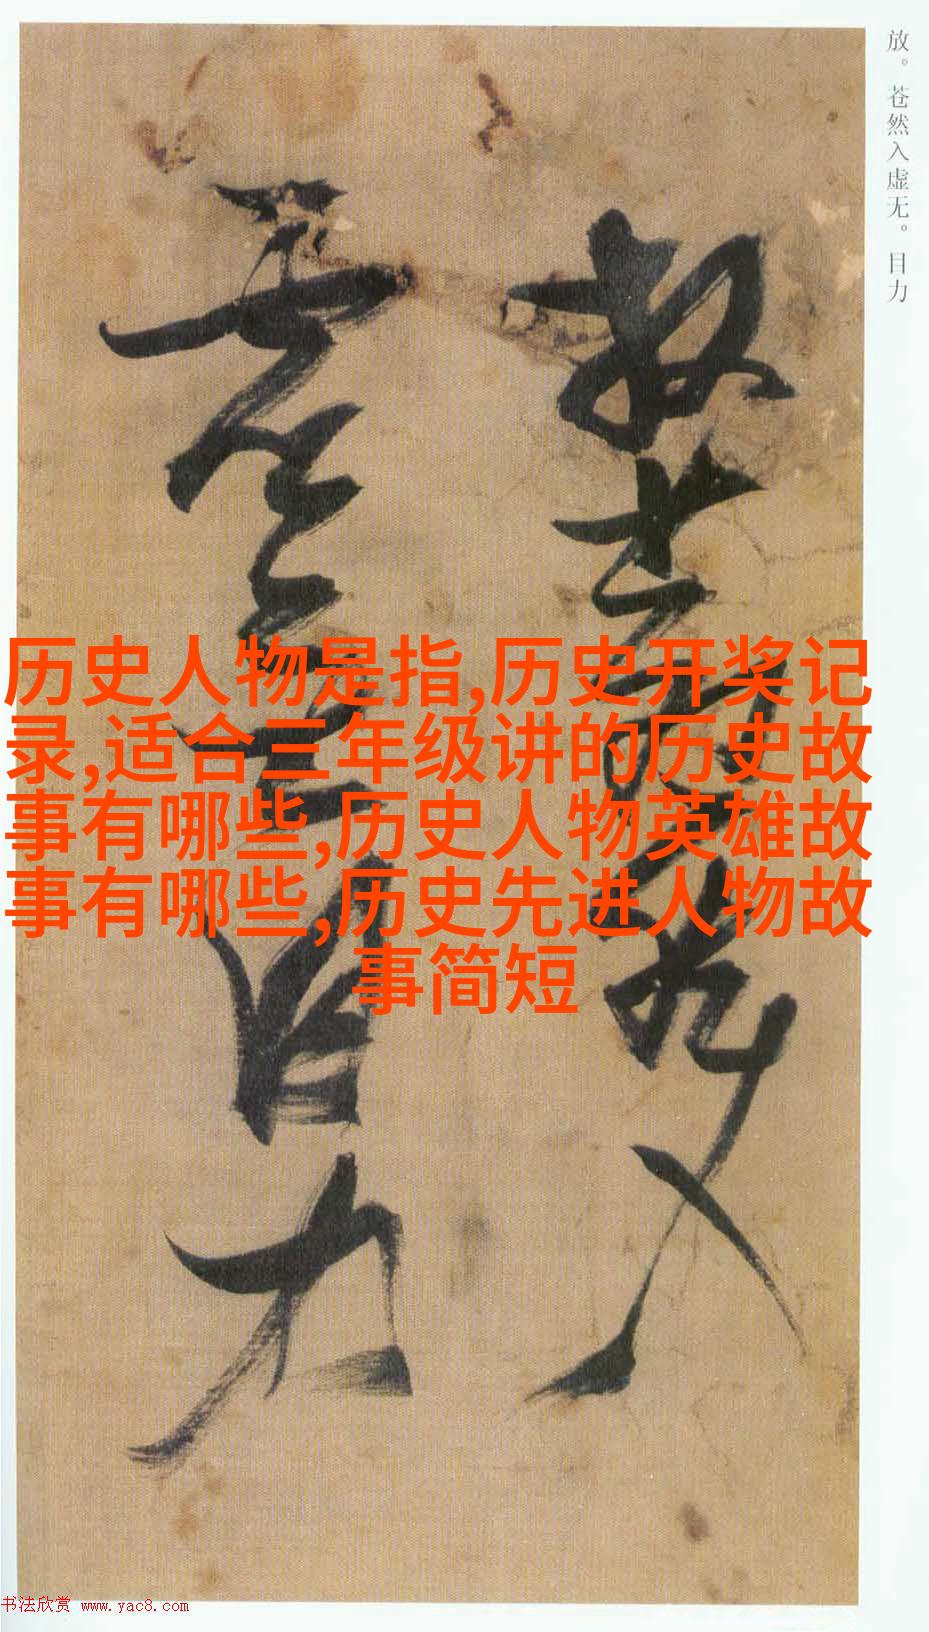 放。苍然入虚无。目力
放苍然入
虚无目力
历史人物是指,历史开奖记
录,适合三年级讲的历史故
事有哪些,历史人物英雄故
事有哪些,历史先进人物故
事简短
书法欣赏 www.yac8.com